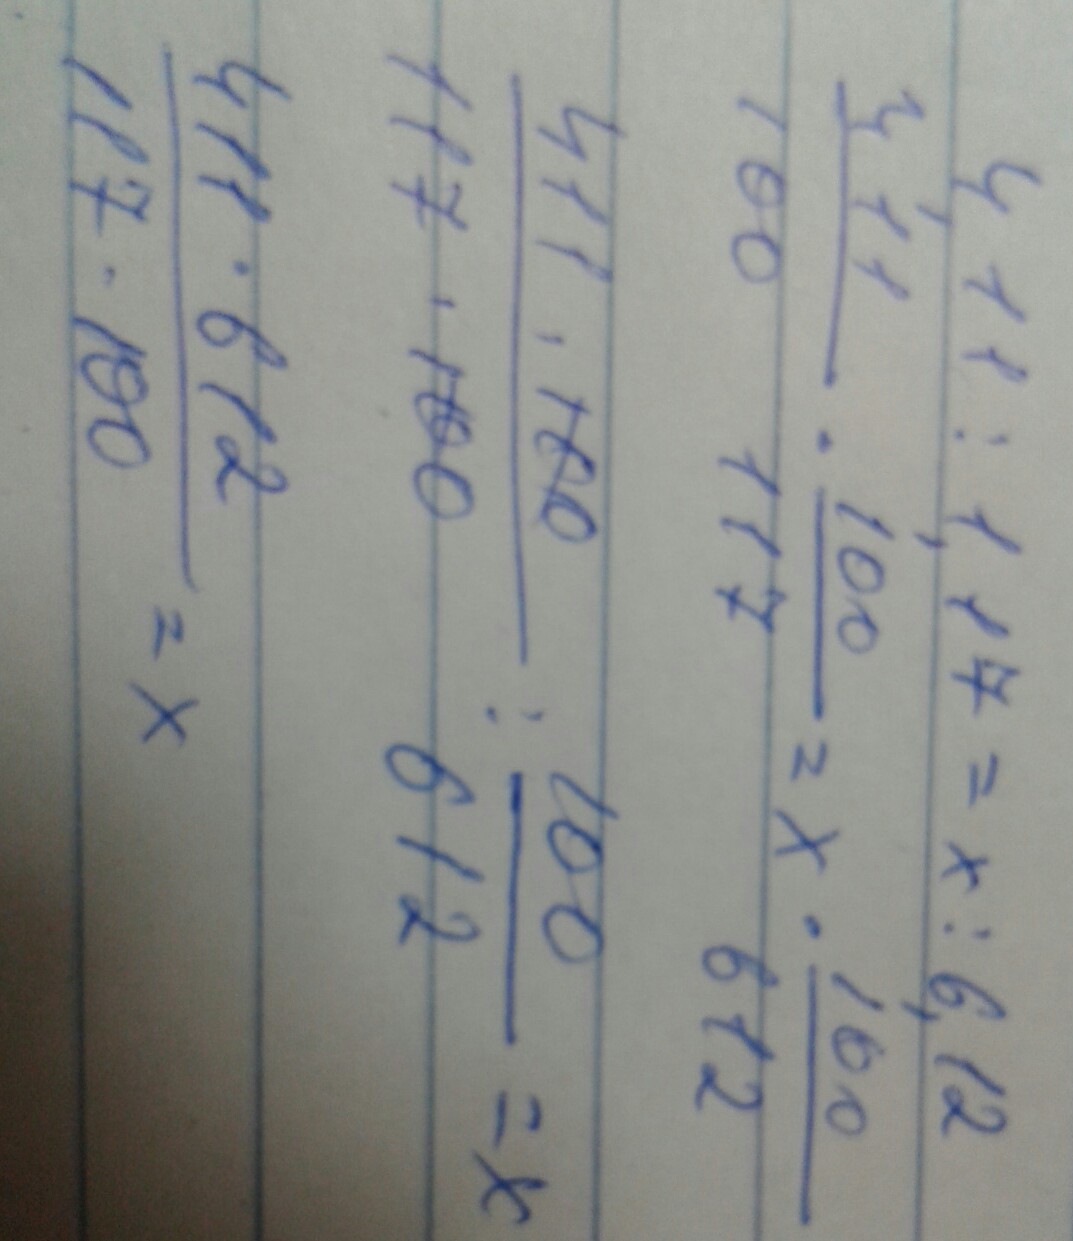 4,11 : 1,17 = x : 6,12
411/100 · 100/117 = x · 100/612
411 · 100/117 · 100 : 100/612 = x
411 · 612/117 · 100 = x